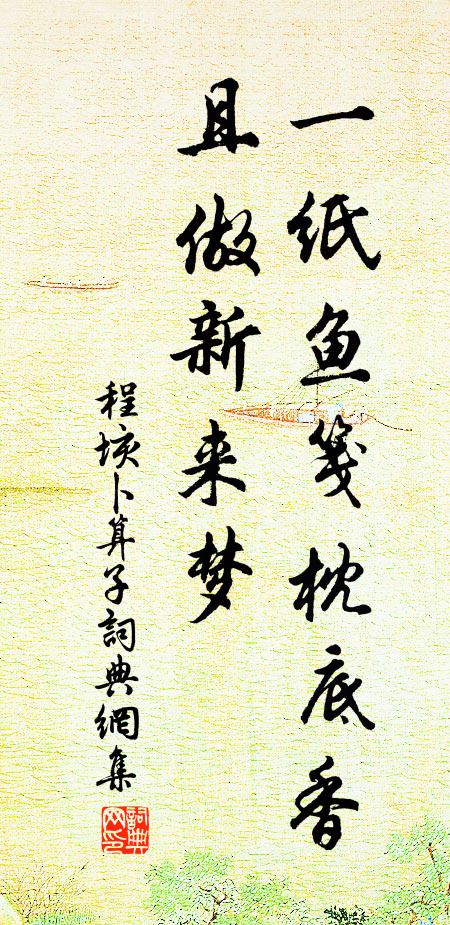 一纸鱼笺枕底香
且做新来梦
程垓卜算子詞典網集
詞典网印